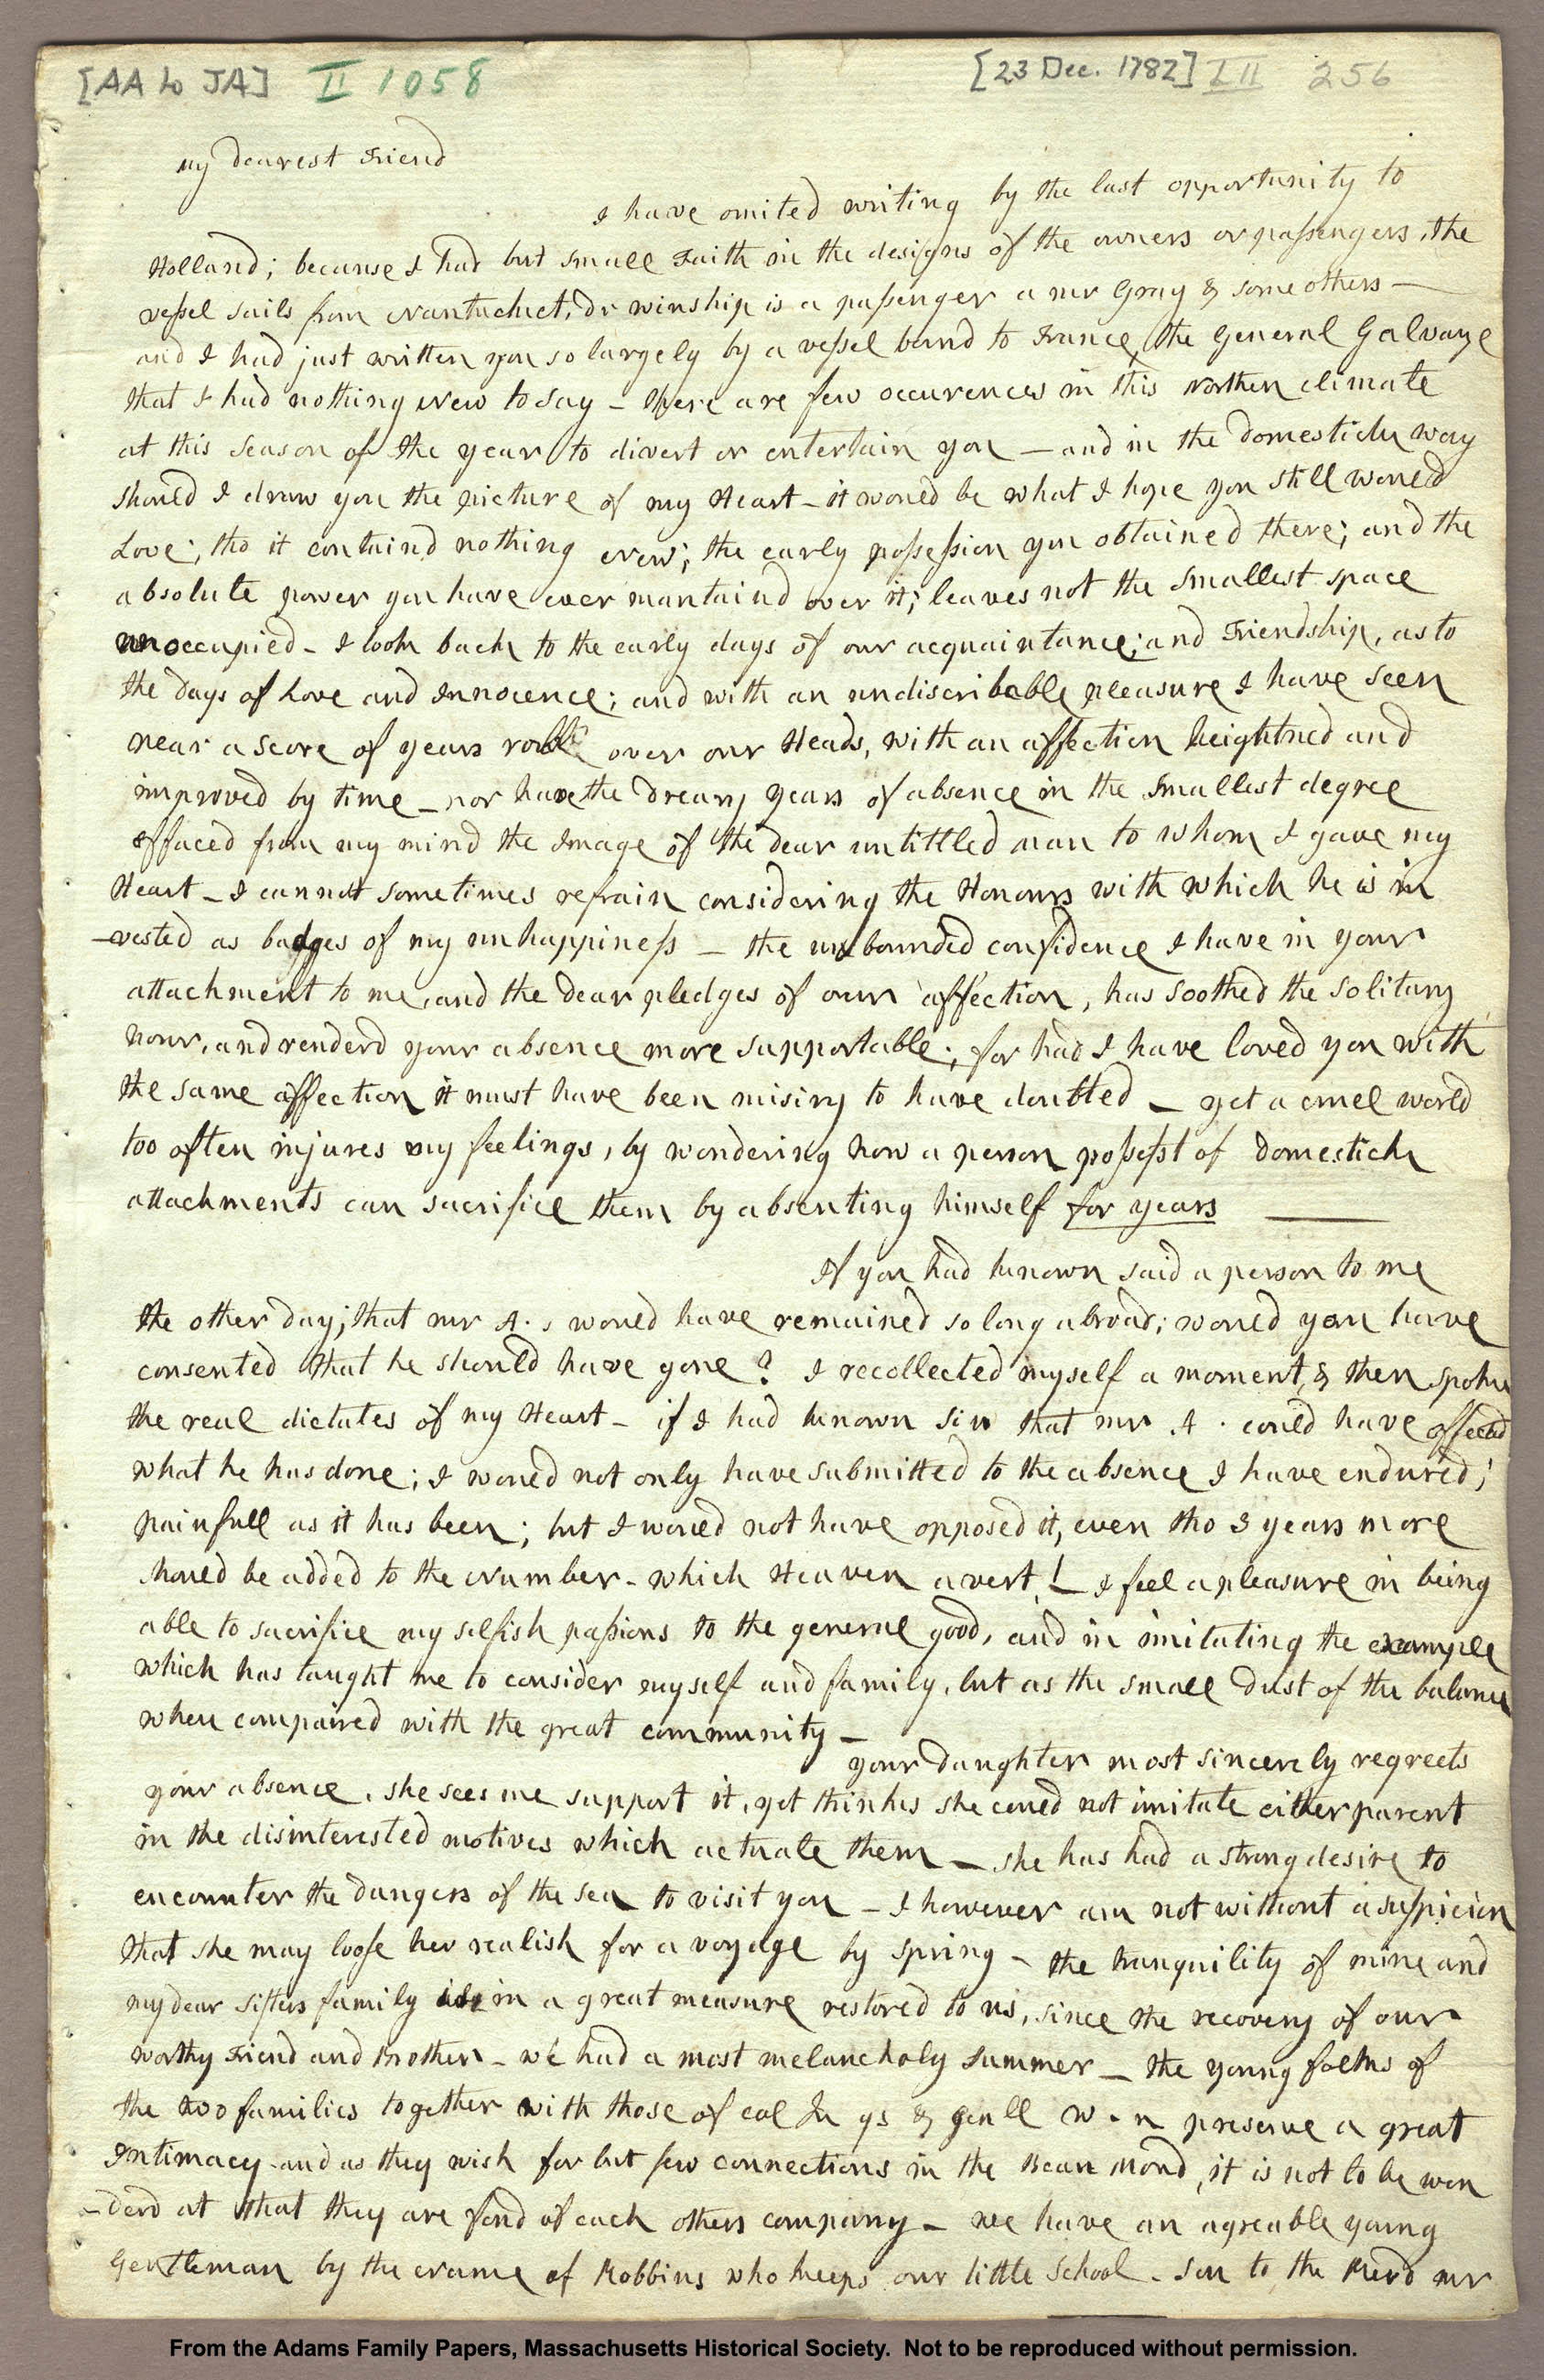 [AA to JA] II 1058 [23 Dec. 1782] III 256
my dearest Friend
I have omited writing by the last opportunity to
Holland; because I had but small Faith in the designs of the owners or passengers, the
vessel sails from Nantucket, Dr winship is a passenger a mr Gray & some others —
and I had just written you so largely by a vessel bound to France, the General Galvaye
that I had nothing New to say — there are few occurences in this Northen climate
at this Season of the year to divert or entertain you — and in the domestick way
should I draw you the picture of my Heart — it would be what I hope you still would
Love; tho it containd nothing New; the early possession you obtained there; and the
absolute power you have ever mantaind over it; leaves not the smallest space
unoccupied — I look back to the early days of our acquaintance; and Friendship, as to
the days of Love and Innocence; and with an undiscribable pleasure I have seen
near a score of years roll over our Heads, with an affection heightned and
improved by time — nor have the dreary years of absence in the smallest degree
effaced from my mind the Image of the dear untittled man to whom I gave my
Heart — I cannot sometimes refrain considering the Honours with which he is in
-vested as badges of my unhappiness — the unbounded confidence I have in your
attachment to me, and the dear pledges of our affection, has soothed the solitary
hour, and renderd your absence more supportable; for had I have loved you with
the same affection it must have been misiry to have doubted — yet a cruel world
too often injures my feelings, by wondering how a person possesst of domestick
attachments can sacrifice them by absenting himself for years —
If you had known said a person to me
the other day; that mr A. s would have remained so long abroad; would you have
consented that he should have gone? I recollected myself a moment, & then spoke
the real dictates of my Heart — if I had known sir that mr A. could have effected
what he has done; I would not only have submitted to the absence I have endured;
painfull as it has been; but I would not have opposed it, even tho 3 years more
should be added to the Number — which Heaven avert! I feel a pleasure in being
able to sacrifice my selfish passions to the general good, and in imitating the example
which has taught me to consider myself and family, but as the small dust of the balance
when compaired with the great community —
your daughter most sincerely regreets
your absence, she sees me support it, yet thinks she could not imitate either parent
in the disinterested motives which actuate them — she has had a strong desire to
encounter the dangers of the sea to visit you — I however am not without a suspicion
that she may loose her realish for a voyage by spring — the tranquility of mine and
my dear sisters family is in a great measure restored to us, since the recovery of our
worthy Friend and Brother — we had a most melancholy summer — the young folks of
the two families together with those of col Qu ys & Genll W. n preserve a great
Intimacy and as they wish for but few connections in the Beau Mond, it is not to be won
-derd at that they are fond of each others company — we have an agreable young
Gentleman by the Name of Robbins who keeps our little school — son to the Revd mr
From the Adams Family Papers, Massachusetts Historical Society. Not to be reproduced without permission.